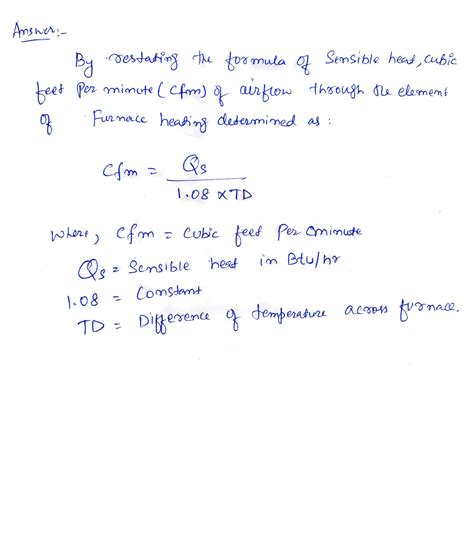 Answer:-
By restating the formula of Sensible heat, cubic
feet Per minute (Cfm) of airflow through the element
of Furnace heating determined as :
Cfm = Qs
1.08 × TD
Where, Cfm = Cubic feet Per minute
Qs = Sensible heat in Btu/hr
1.08 = Constant
TD = Difference of temperature across furnace.